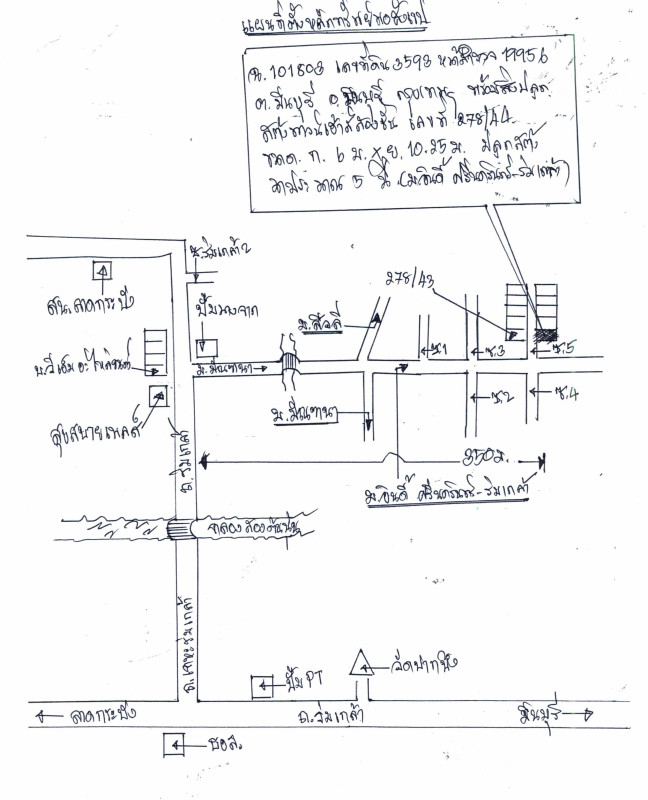 แผนที่ตั้งหลักทรัพย์ของ
ฉ. 101803 เลขที่ดิน 3593 หน้าสำรวจ 19956
ต. มีนบุรี อ. มีนบุรี กรุงเทพฯ พร้อมสิ่งปลูก
สร้างทาวน์เฮ้าส์สองชั้น เลขที่ 278/44
ขนาด ก. 6 ม. x ย. 10.25 ม. ปลูกสร้าง
มาประมาณ 5 ปี (ม.อินดี้ ศรีนครินทร์-ร่มเกล้า)
ซ.ร่มเกล้า 2
สน.ลาดกระบัง
ปั๊มบางจาก
278/43
ม.สีวลี
ซ.1
ซ.3
ซ.5
ม.มัณฑนา
สุขสบายเพลส
ซ.2
ซ.4
ม.มัณฑนา
ถ.ร่มเกล้า
350 ม.
ม.อินดี้ ศรีนครินทร์-ร่มเกล้า
คลองสองต้นนุ่น
ถ.เคหะร่มเกล้า
ปั๊ม PT
วัดปากบึง
ลาดกระบัง
ถ.ร่มเกล้า
มีนบุรี
ธอส.